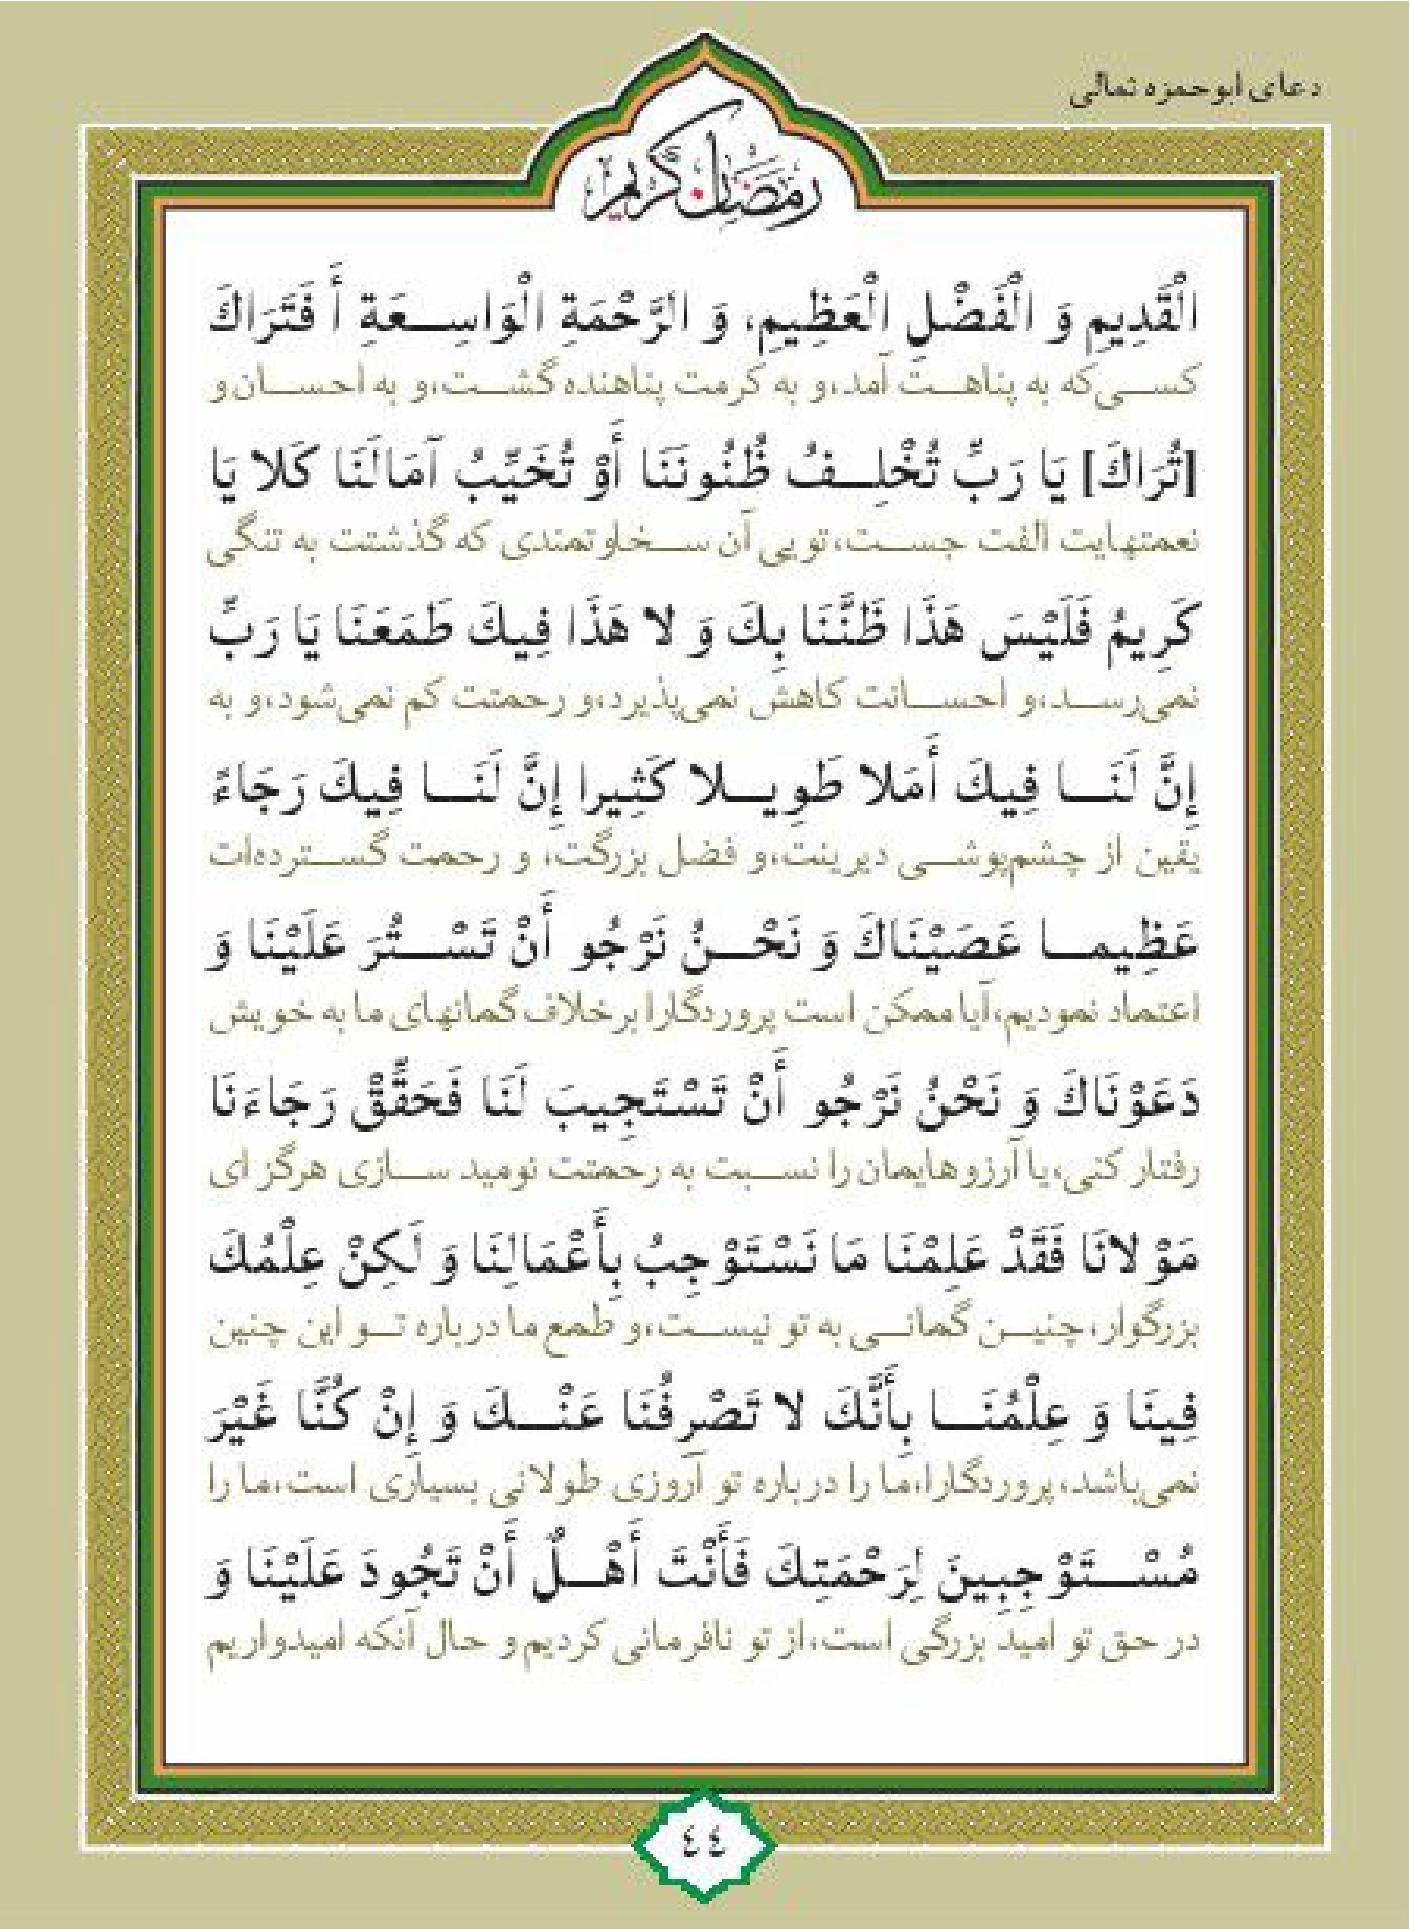 دعای ابوحمزه ثمالی
رمضان كريم
الْقَدِيمِ وَ الْفَضْلِ الْعَظِيمِ، وَ الرَّحْمَةِ الْوَاسِعَةِ أَ فَتَرَاكَ
کسی‌که به پناهت آمد،و به کرمت پناهنده گشت،و به احسان و
[تُرَاكَ] يَا رَبِّ تُخْلِفُ ظُنُونَنَا أَوْ تُخَيِّبُ آمَالَنَا كَلا يَا
نعمتهایت الفت جست،تویی آن سخاوتمندی که گذشتت به تنگی
كَرِيمُ فَلَيْسَ هَذَا ظَنَّنَا بِكَ وَ لا هَذَا فِيكَ طَمَعَنَا يَا رَبِّ
نمی‌رسد،و احسانت کاهش نمی‌پذیرد،و رحمتت کم نمی‌شود،و به
إِنَّ لَنَا فِيكَ أَمَلا طَوِيلا كَثِيرا إِنَّ لَنَا فِيكَ رَجَاءً
یقین از چشم‌پوشی دیرینت،و فضل بزرگت، و رحمت گسترده‌ات
عَظِيما عَصَيْنَاكَ وَ نَحْنُ نَرْجُو أَنْ تَسْتُرَ عَلَيْنَا وَ
اعتماد نمودیم،آیا ممکن است پروردگارا برخلاف گمانهای ما به خویش
دَعَوْنَاكَ وَ نَحْنُ نَرْجُو أَنْ تَسْتَجِيبَ لَنَا فَحَقِّقْ رَجَاءَنَا
رفتار کنی،یا آرزوهایمان را نسبت به رحمتت نومید سازی هرگز ای
مَوْلانَا فَقَدْ عَلِمْنَا مَا نَسْتَوْجِبُ بِأَعْمَالِنَا وَ لَكِنْ عِلْمُكَ
بزرگوار،چنین گمانی به تو نیست،و طمع ما درباره تو این چنین
فِينَا وَ عِلْمُنَا بِأَنَّكَ لا تَصْرِفُنَا عَنْكَ وَ إِنْ كُنَّا غَيْرَ
نمی‌باشد،پروردگارا،ما را درباره تو آروزی طولانی بسیاری است،ما را
مُسْتَوْجِبِينَ لِرَحْمَتِكَ فَأَنْتَ أَهْلٌ أَنْ تَجُودَ عَلَيْنَا وَ
در حق تو امید بزرگی است،از تو نافرمانی کردیم و حال آنکه امیدواریم
٤٤